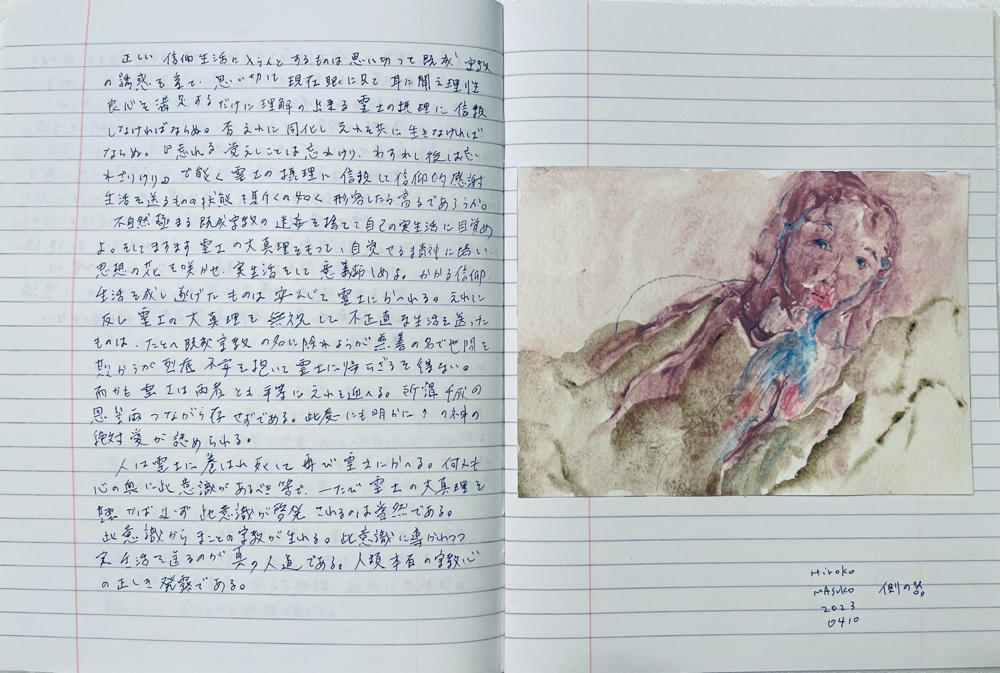 正しい信仰生活に入らんとするものは思い切って既成宗教
の誘惑を棄て、思い切って現在眼に見て耳に聞え理性
良心を満足するだけに理解の出来る霊土の摂理に信頼
しなければならぬ。否之れに同化し之れと共に生きなければ
ならぬ。『忘れる覚えしことは忘れけり、わすれし後は忘
れざりけり』で能く霊土の摂理に信頼して信仰的感謝
生活を送るものの状態を其の如く形容したる言であろうか。
不自然極まる既成宗教の迷妄を捨てて自己の実生活に目覚め
よ。そしてますます霊土の大真理をもって、自覚せる精神に培い、
思想の花を咲かせ、実生活をして意義あらしめよ。かかる信仰
生活を成し遂げたものは安んじて霊土にかへれる。之れに
反し霊土の大真理を無視して不正直な生活を送った
ものは、たとへ既成宗教の名に隠れようが慈善の名で世間を
欺かうが 不安を抱いて霊土に帰らざるを得ない。
而かも霊土は両者とも平等に之れを迎へる。所謂
恩 ながら存せずである。此処にも明かに の神の
絶対愛が認められる。
人は霊土に養はれ死して再び霊土にかへる。何人も
心の奥に此意識があるべき筈で、一たび霊土の大真理を
聴かば必ず此意識が啓発されるのは当然である。
此意識からまことの宗教が生れる。此意識に導かれつつ
実生活を送るのが真の人道である。人類本有の宗教心
の正しき発露である。
Hiroko
MASUKO 側の努。
2023
0410